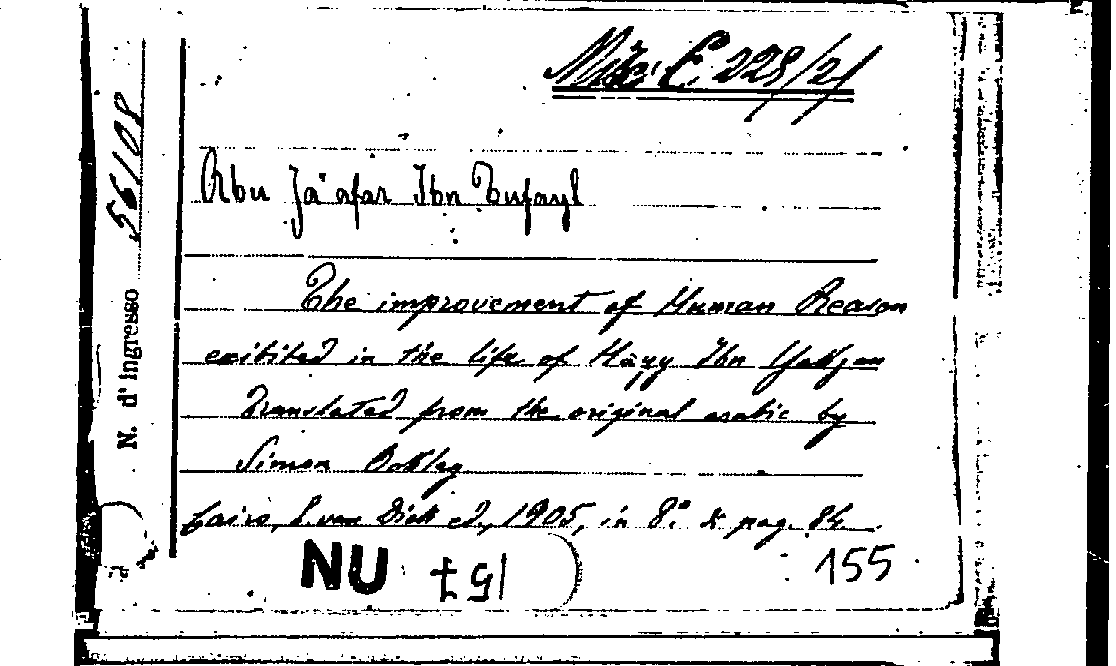 Misc. C. 228/21
N. d'ingresso 56108
Abu Ja'afar Ibn Tufayl
The improvement of Human Reason
exibited in the life of Hayy Ibn Yakjan
Translated from the original arabic by
Simon Ockley
Cairo, E. van Dick ed., 1905, in 8.° di pag. 84
NU
155